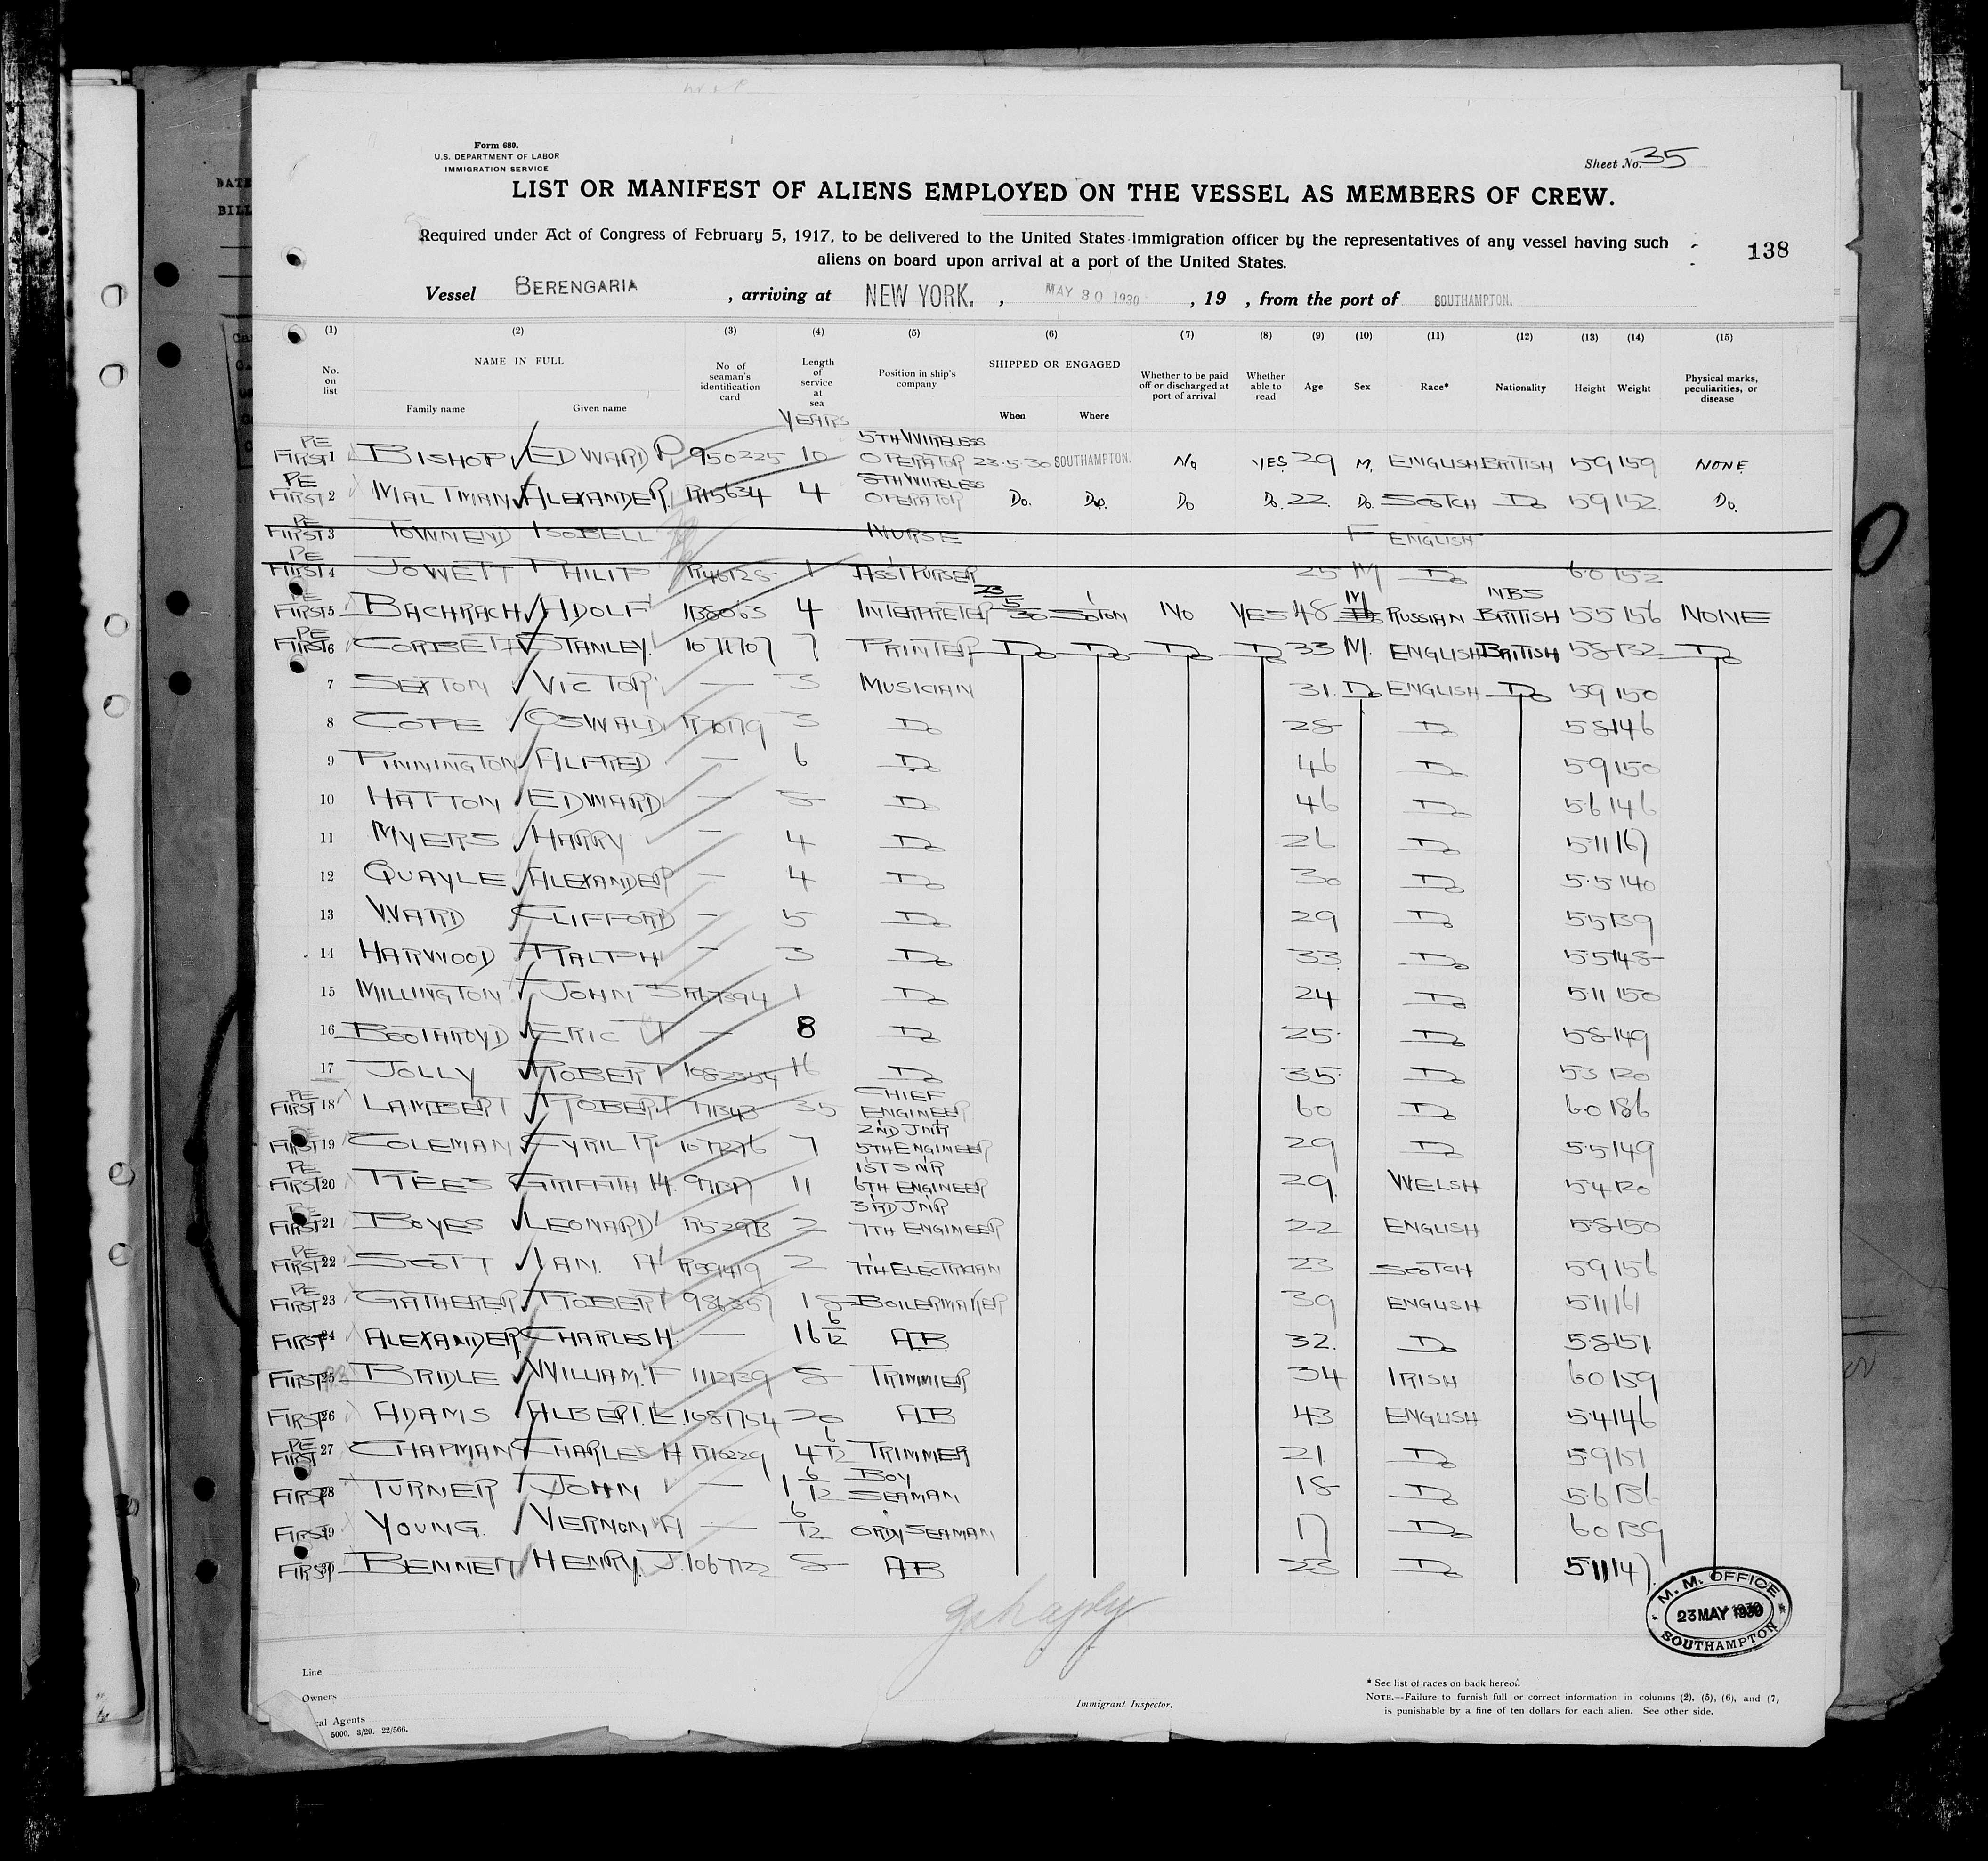 Form 680.
U.S. DEPARTMENT OF LABOR
IMMIGRATION SERVICE
Sheet No. 35
LIST OR MANIFEST OF ALIENS EMPLOYED ON THE VESSEL AS MEMBERS OF CREW.
Required under Act of Congress of February 5, 1917, to be delivered to the United States immigration officer by the representatives of any vessel having such
aliens on board upon arrival at a port of the United States.
138
Vessel BERENGARIA , arriving at NEW YORK. , MAY 30 1930 , 19 , from the port of SOUTHAMPTON.
(1) (2) (3) (4) (5) (6) (7) (8) (9) (10) (11) (12) (13) (14) (15)
No. on list NAME IN FULL Family name Given name No of seaman's identification card Length of service at sea YEARS Position in ship's company SHIPPED OR ENGAGED When Where Whether to be paid off or discharged at port of arrival Whether able to read Age Sex Race* Nationality Height Weight Physical marks, peculiarities, or disease
PE FIRST 1 BISHOP EDWARD P. 950225 10 5TH WIRELESS OPERATOR 23.5.30 SOUTHAMPTON. NO YES 29 M. ENGLISH BRITISH 59 159 NONE
PE FIRST 2 MALTMAN ALEXANDER. R115634 4 8TH WIRELESS OPERATOR Do. Do. Do Do. 22. Do. SCOTCH Do 59 152. Do.
PE FIRST 3 TOWNEND ISOBELL NURSE F ENGLISH
PE FIRST 4 JOWETT PHILIP R46125 1 ASST PURSER 25 M Do 6.0 152
PE FIRST 5 BACHRACH ADOLF 4 INTERPRETER 23/5/30 SOTON NO YES 48 M RUSSIAN NBS BRITISH 55 156 NONE
PE FIRST 6 CORBETT STANLEY. 1071707 7 PRINTER Do Do Do Do 33 M. ENGLISH BRITISH 58 132 Do
7 SEXTON VICTOR — 3 MUSICIAN 31. Do ENGLISH Do 59 150
8 COPE OSWALD 3 Do 28 Do 58 146
9 PINNINGTON ALFRED — 6 Do 46 Do 59 150
10 HATTON EDWARD — 5 Do 46 Do 56 146
11 MYERS HARRY — 4 Do 26 Do 511 167
12 QUAYLE ALEXANDER — 4 Do 30 Do 5.5 140
13 WARD CLIFFORD — 5 Do 29 Do 55 139
14 HARWOOD RALPH — 3 Do 33. Do 55 148
15 MILLINGTON JOHN S R67394 1 Do 24 Do 511 150
16 BOOTHROYD ERIC — 8 Do 25. Do 58 149
17 JOLLY ROBERT 1082354 16 Do 35. Do 53 120
PE FIRST 18 LAMBERT ROBERT 771343 35 CHIEF ENGINEER 60 Do 6.0 186
FIRST 19 COLEMAN CYRIL R. 1071276 7 2ND JNR 5TH ENGINEER 29 Do 5.5 149
PE FIRST 20 REES GRIFFITH H. 11 1ST SNR 6TH ENGINEER 29. WELSH 54 120
FIRST 21 BOYES LEONARD R52973 2 3RD JNR 7TH ENGINEER 22 ENGLISH 58 150
PE FIRST 22 SCOTT IAN. A R59419 2 7TH ELECTRICIAN 23 SCOTCH 59 156
PE FIRST 23 GATHERER ROBERT 986357 18 BOILERMAKER 39 ENGLISH 511 161
FIRST 24 ALEXANDER. CHARLES H. — 16 6/12 AB 32. Do 58 151.
FIRST 25 BRIDLE WILLIAM. F 1112139 8 TRIMMER 34 IRISH 60 159
FIRST 26 ADAMS ALBERT. E. 1081754 20 AB 43 ENGLISH 54 146
PE FIRST 27 CHAPMAN CHARLES H R110229 4 6/12 TRIMMER 21 Do 59 151
FIRST 28 TURNER JOHN — 1 6/12 BOY SEAMAN 18 Do 5.6 136
FIRST 29 YOUNG. VERNON A — 6/12 ORDY SEAMAN 17 Do 60 139
FIRST 30 BENNETT HENRY. J. 1067122 8 AB 23 Do 511 147.
M. M. OFFICE
23 MAY 1930
SOUTHAMPTON
Line
Owners
Immigrant Inspector.
cal Agents
5000. 3/29. 22/566.
* See list of races on back hereof.
NOTE.—Failure to furnish full or correct information in columns (2), (5), (6), and (7,
is punishable by a fine of ten dollars for each alien. See other side.